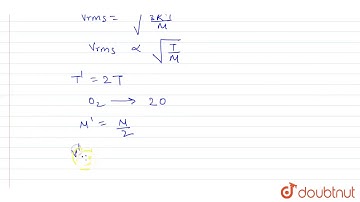 Vrms = √(3RT/M)
Vrms ∝ √(T/M)
T' = 2T
O₂ ⟶ 2O
M' = M/2
V'
doubtnut